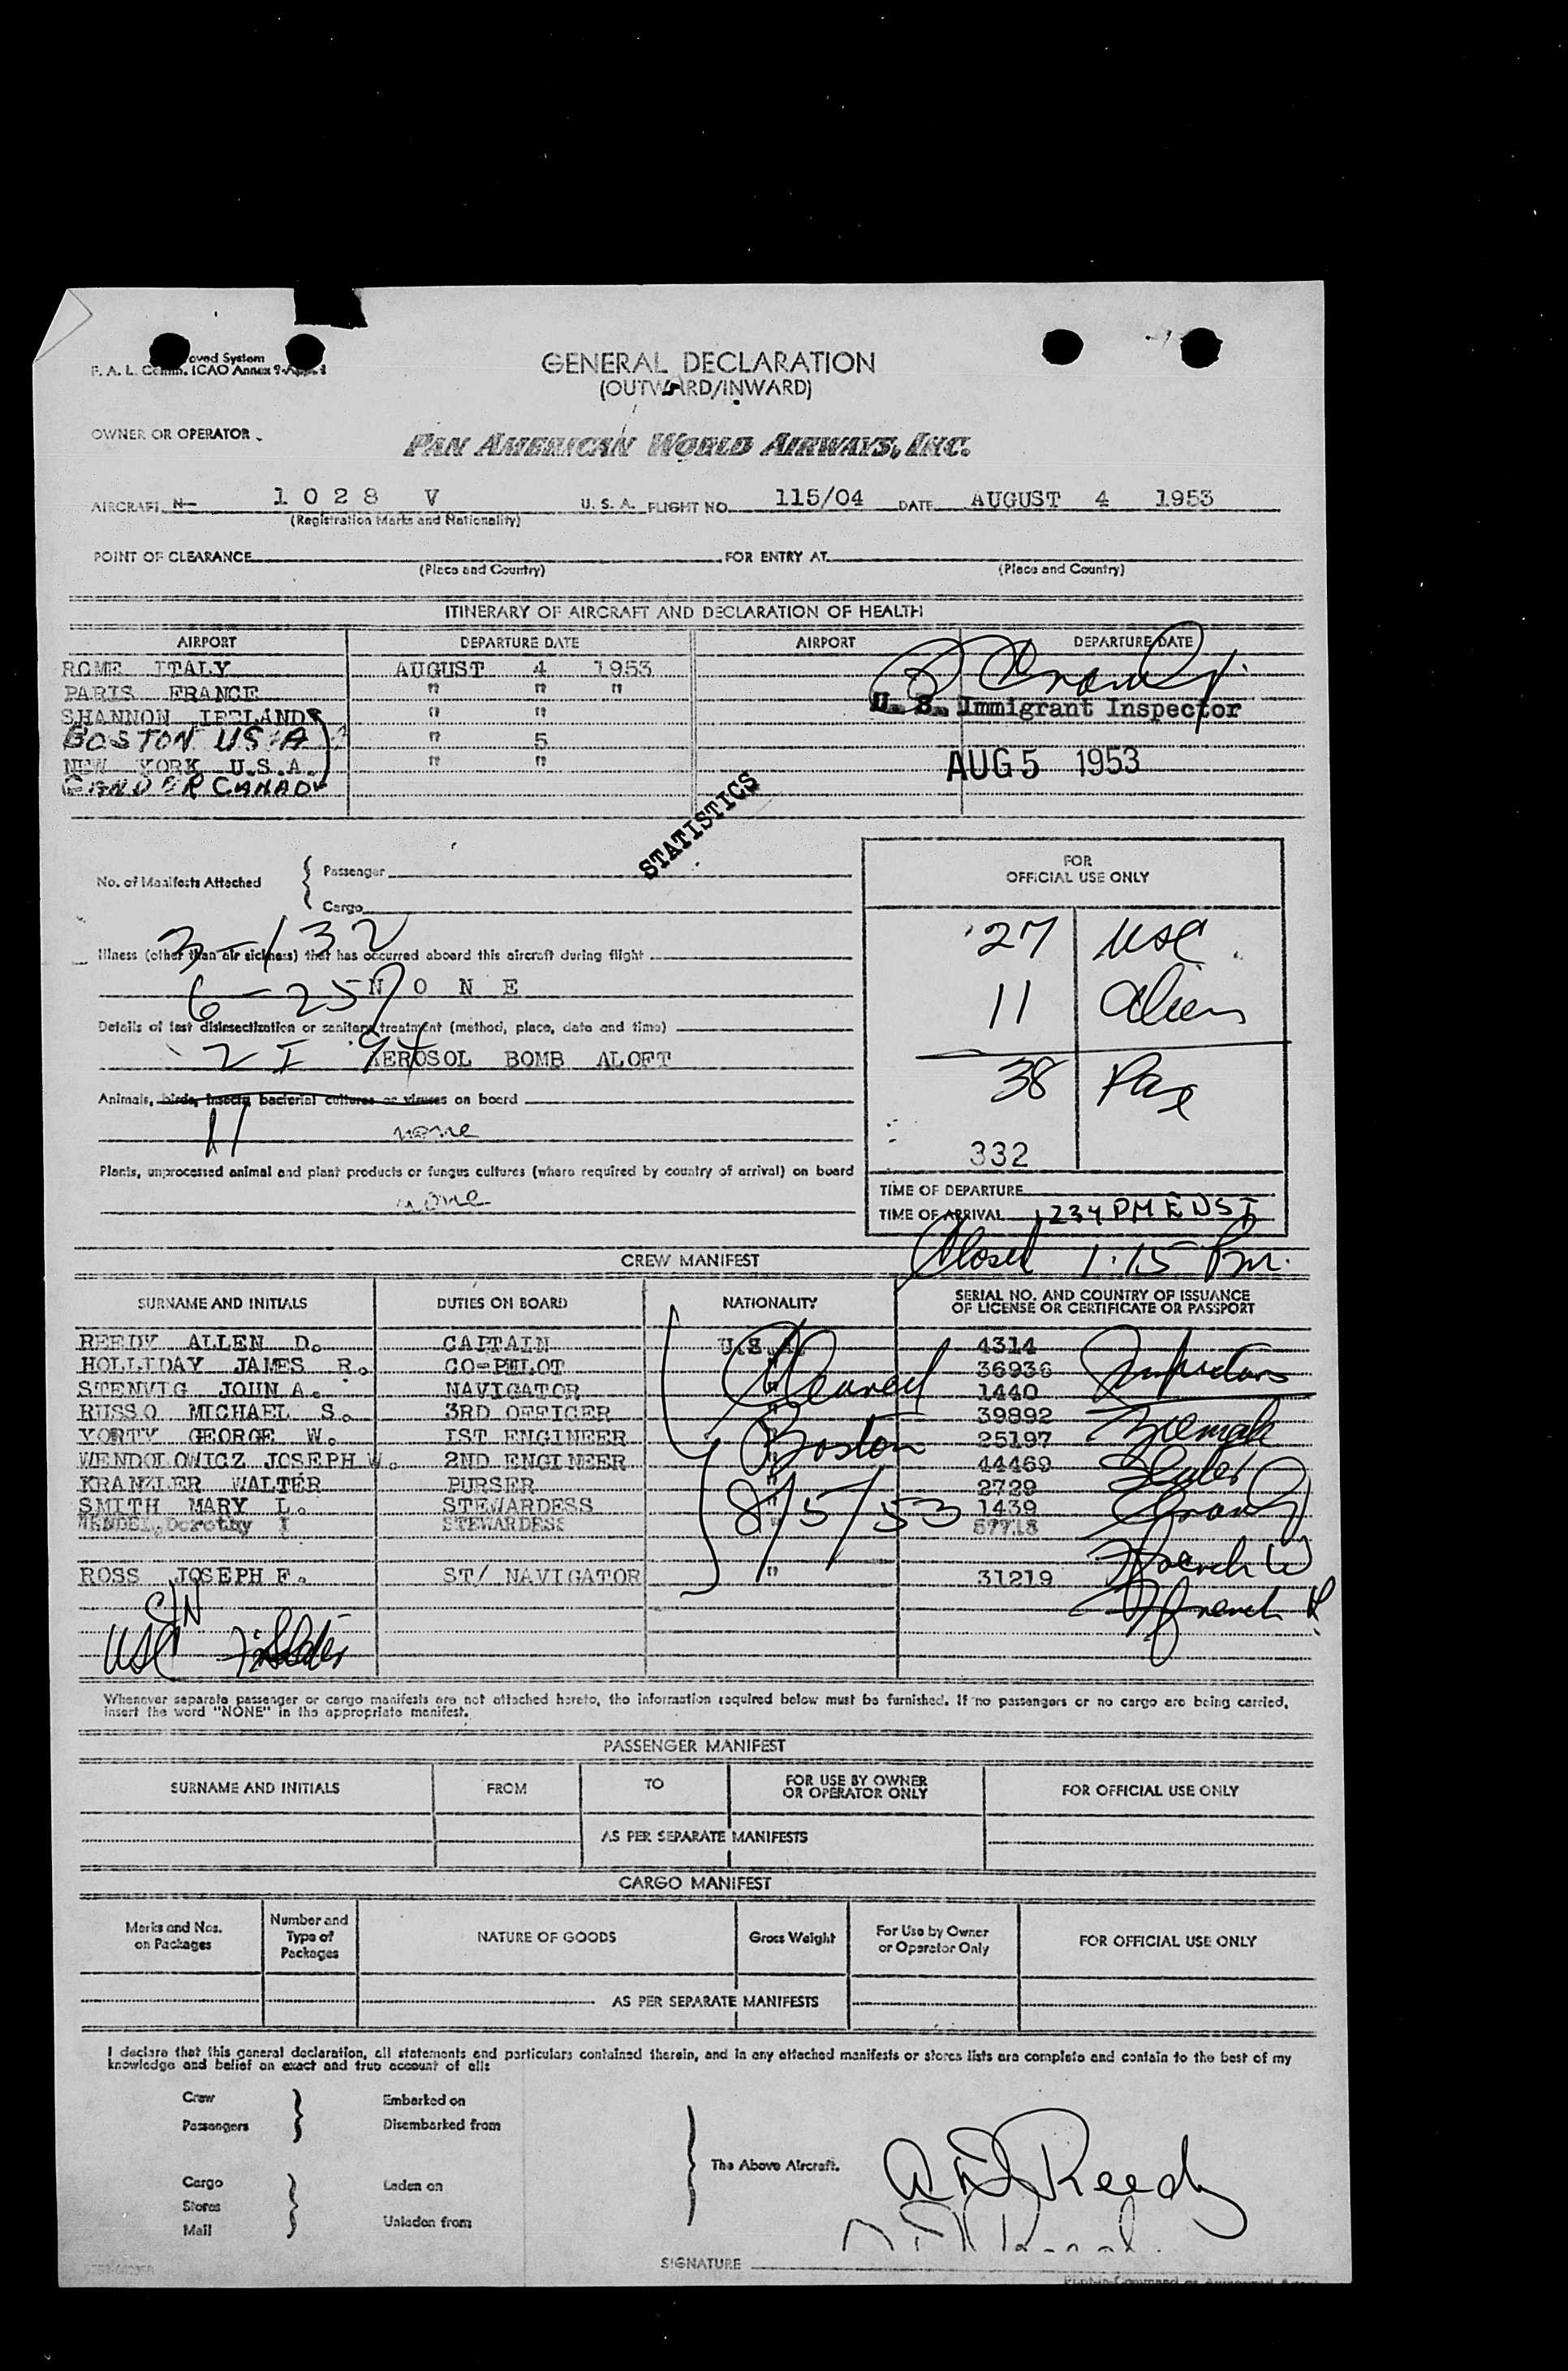 GENERAL DECLARATION
(OUTWARD/INWARD)
F. A. L. Comm. ICAO Annex 9
OWNER OR OPERATOR
PAN AMERICAN WORLD AIRWAYS, INC.
AIRCRAFT N- 1028 V U. S. A. FLIGHT NO. 115/04 DATE AUGUST 4 1953
(Registration Marks and Nationality)
POINT OF CLEARANCE FOR ENTRY AT
(Place and Country) (Place and Country)
ITINERARY OF AIRCRAFT AND DECLARATION OF HEALTH
AIRPORT DEPARTURE DATE AIRPORT DEPARTURE DATE
ROME ITALY AUGUST 4 1953
PARIS FRANCE " " "
SHANNON IRELAND " "
U. S. Immigrant Inspector
BOSTON USA " 5
NEW YORK U.S.A. " "
AUG 5 1953
GANDER CANADA
STATISTICS
No. of Manifests Attached
Passenger
Cargo
FOR
OFFICIAL USE ONLY
27 USC
11 Alien
38 Pax
332
TIME OF DEPARTURE
TIME OF ARRIVAL 1234 PM EDST
Closed 1:15 Pm.
3-132
Illness (other than air sickness) that has occurred aboard this aircraft during flight
NONE
6-257
Details of last disinsectization or sanitary treatment (method, place, date and time)
AEROSOL BOMB ALOFT
Animals, birds, insects, bacterial cultures or viruses on board
11
none
Plants, unprocessed animal and plant products or fungus cultures (where required by country of arrival) on board
none
CREW MANIFEST
SURNAME AND INITIALS DUTIES ON BOARD NATIONALITY SERIAL NO. AND COUNTRY OF ISSUANCE
OF LICENSE OR CERTIFICATE OR PASSPORT
REEDY ALLEN D. CAPTAIN U.S.A. 4314
HOLLIDAY JAMES R. CO-PILOT " 36936
STENVIG JOHN A. NAVIGATOR " 1440
RUSSO MICHAEL S. 3RD OFFICER " 39892
YORTY GEORGE W. IST ENGINEER " 25197
WENDOLOWICZ JOSEPH W. 2ND ENGINEER " 44469
KRANZLER WALTER PURSER " 2729
SMITH MARY L. STEWARDESS " 1439
MENDEL, Dorothy I STEWARDESS " 57718
ROSS JOSEPH F. ST/ NAVIGATOR " 31219
Cleared
Boston
8/5/53
Inspectors
French W
French R
USC
Whenever separate passenger or cargo manifests are not attached hereto, the information required below must be furnished. If no passengers or no cargo are being carried,
insert the word "NONE" in the appropriate manifest.
PASSENGER MANIFEST
SURNAME AND INITIALS FROM TO FOR USE BY OWNER
OR OPERATOR ONLY FOR OFFICIAL USE ONLY
AS PER SEPARATE MANIFESTS
CARGO MANIFEST
Marks and Nos.
on Packages
Number and
Type of
Packages
NATURE OF GOODS
Gross Weight
For Use by Owner
or Operator Only
FOR OFFICIAL USE ONLY
AS PER SEPARATE MANIFESTS
I declare that this general declaration, all statements and particulars contained therein, and in any attached manifests or stores lists are complete and contain to the best of my
knowledge and belief an exact and true account of all:
Crew Embarked on
Passengers Disembarked from
The Above Aircraft.
Cargo Laden on
Stores
Mail Unladen from
A D Reedy
SIGNATURE